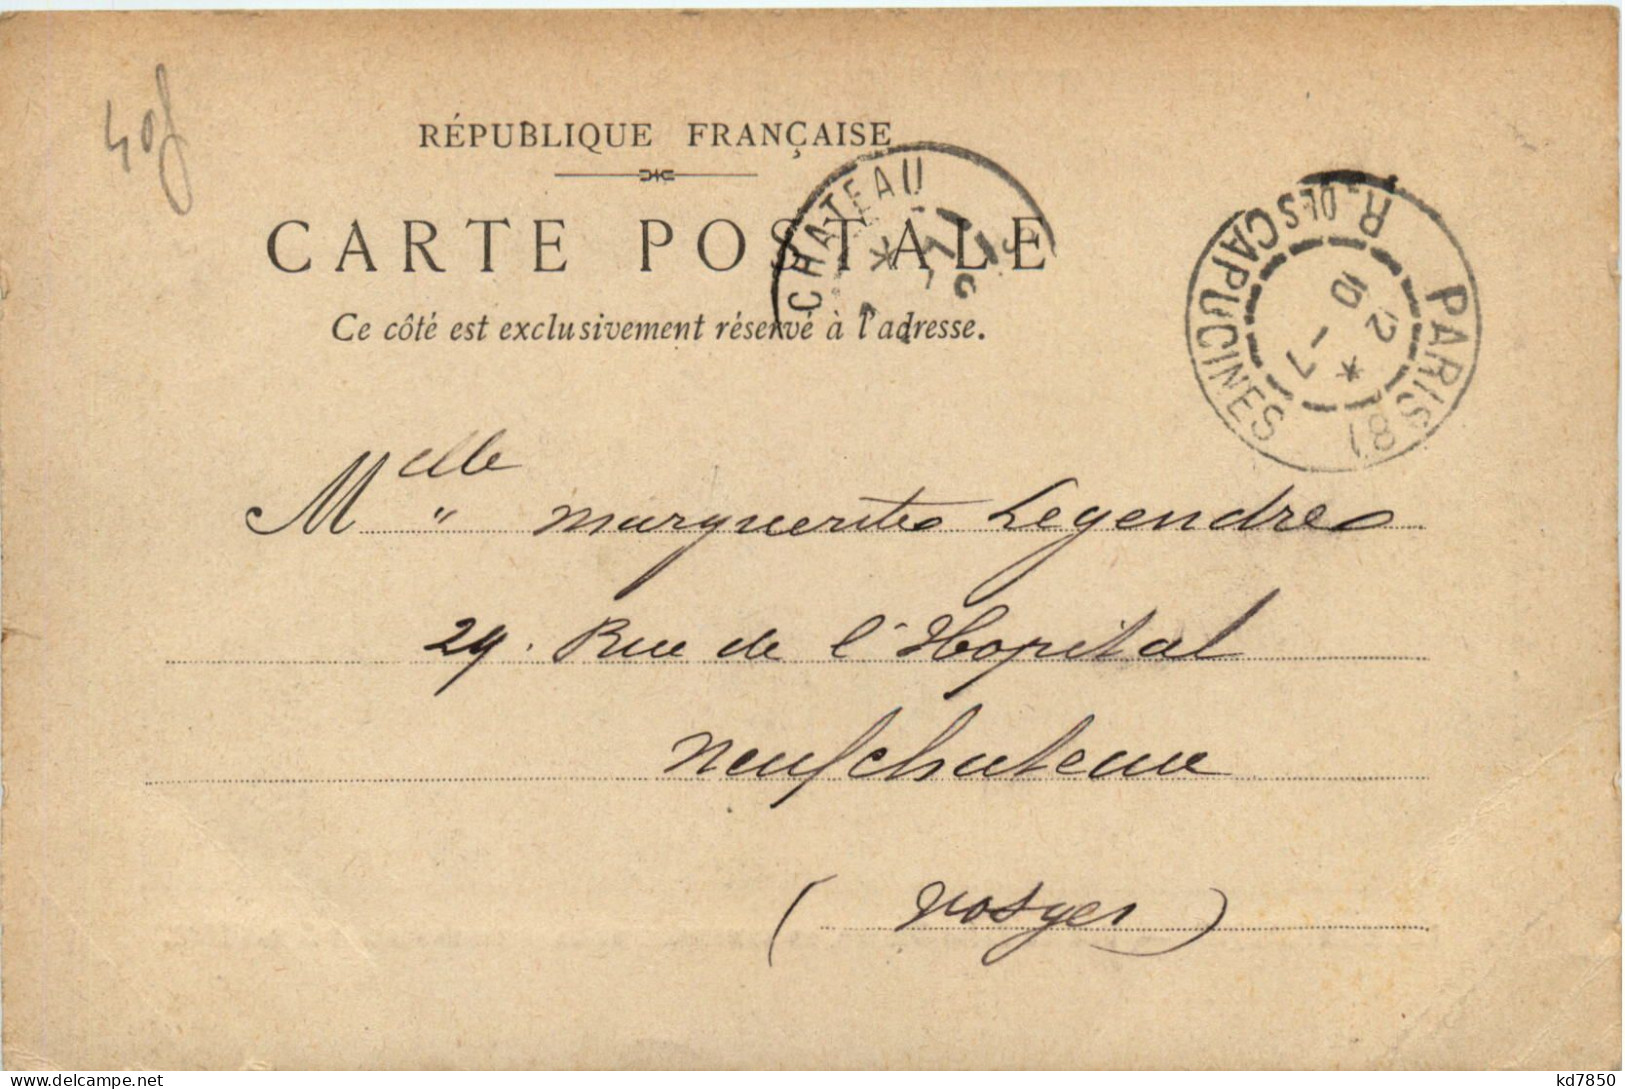 40f
RÉPUBLIQUE FRANÇAISE
CARTE POSTALE
Ce côté est exclusivement réservé à l'adresse.
CHATEAU
PARIS (81)
R. DES CAPUCINES
12
10
7
Melle Marguerite Legendre
29. Rue de l'Hopital
Neufchateau
(Vosges)
kd7850